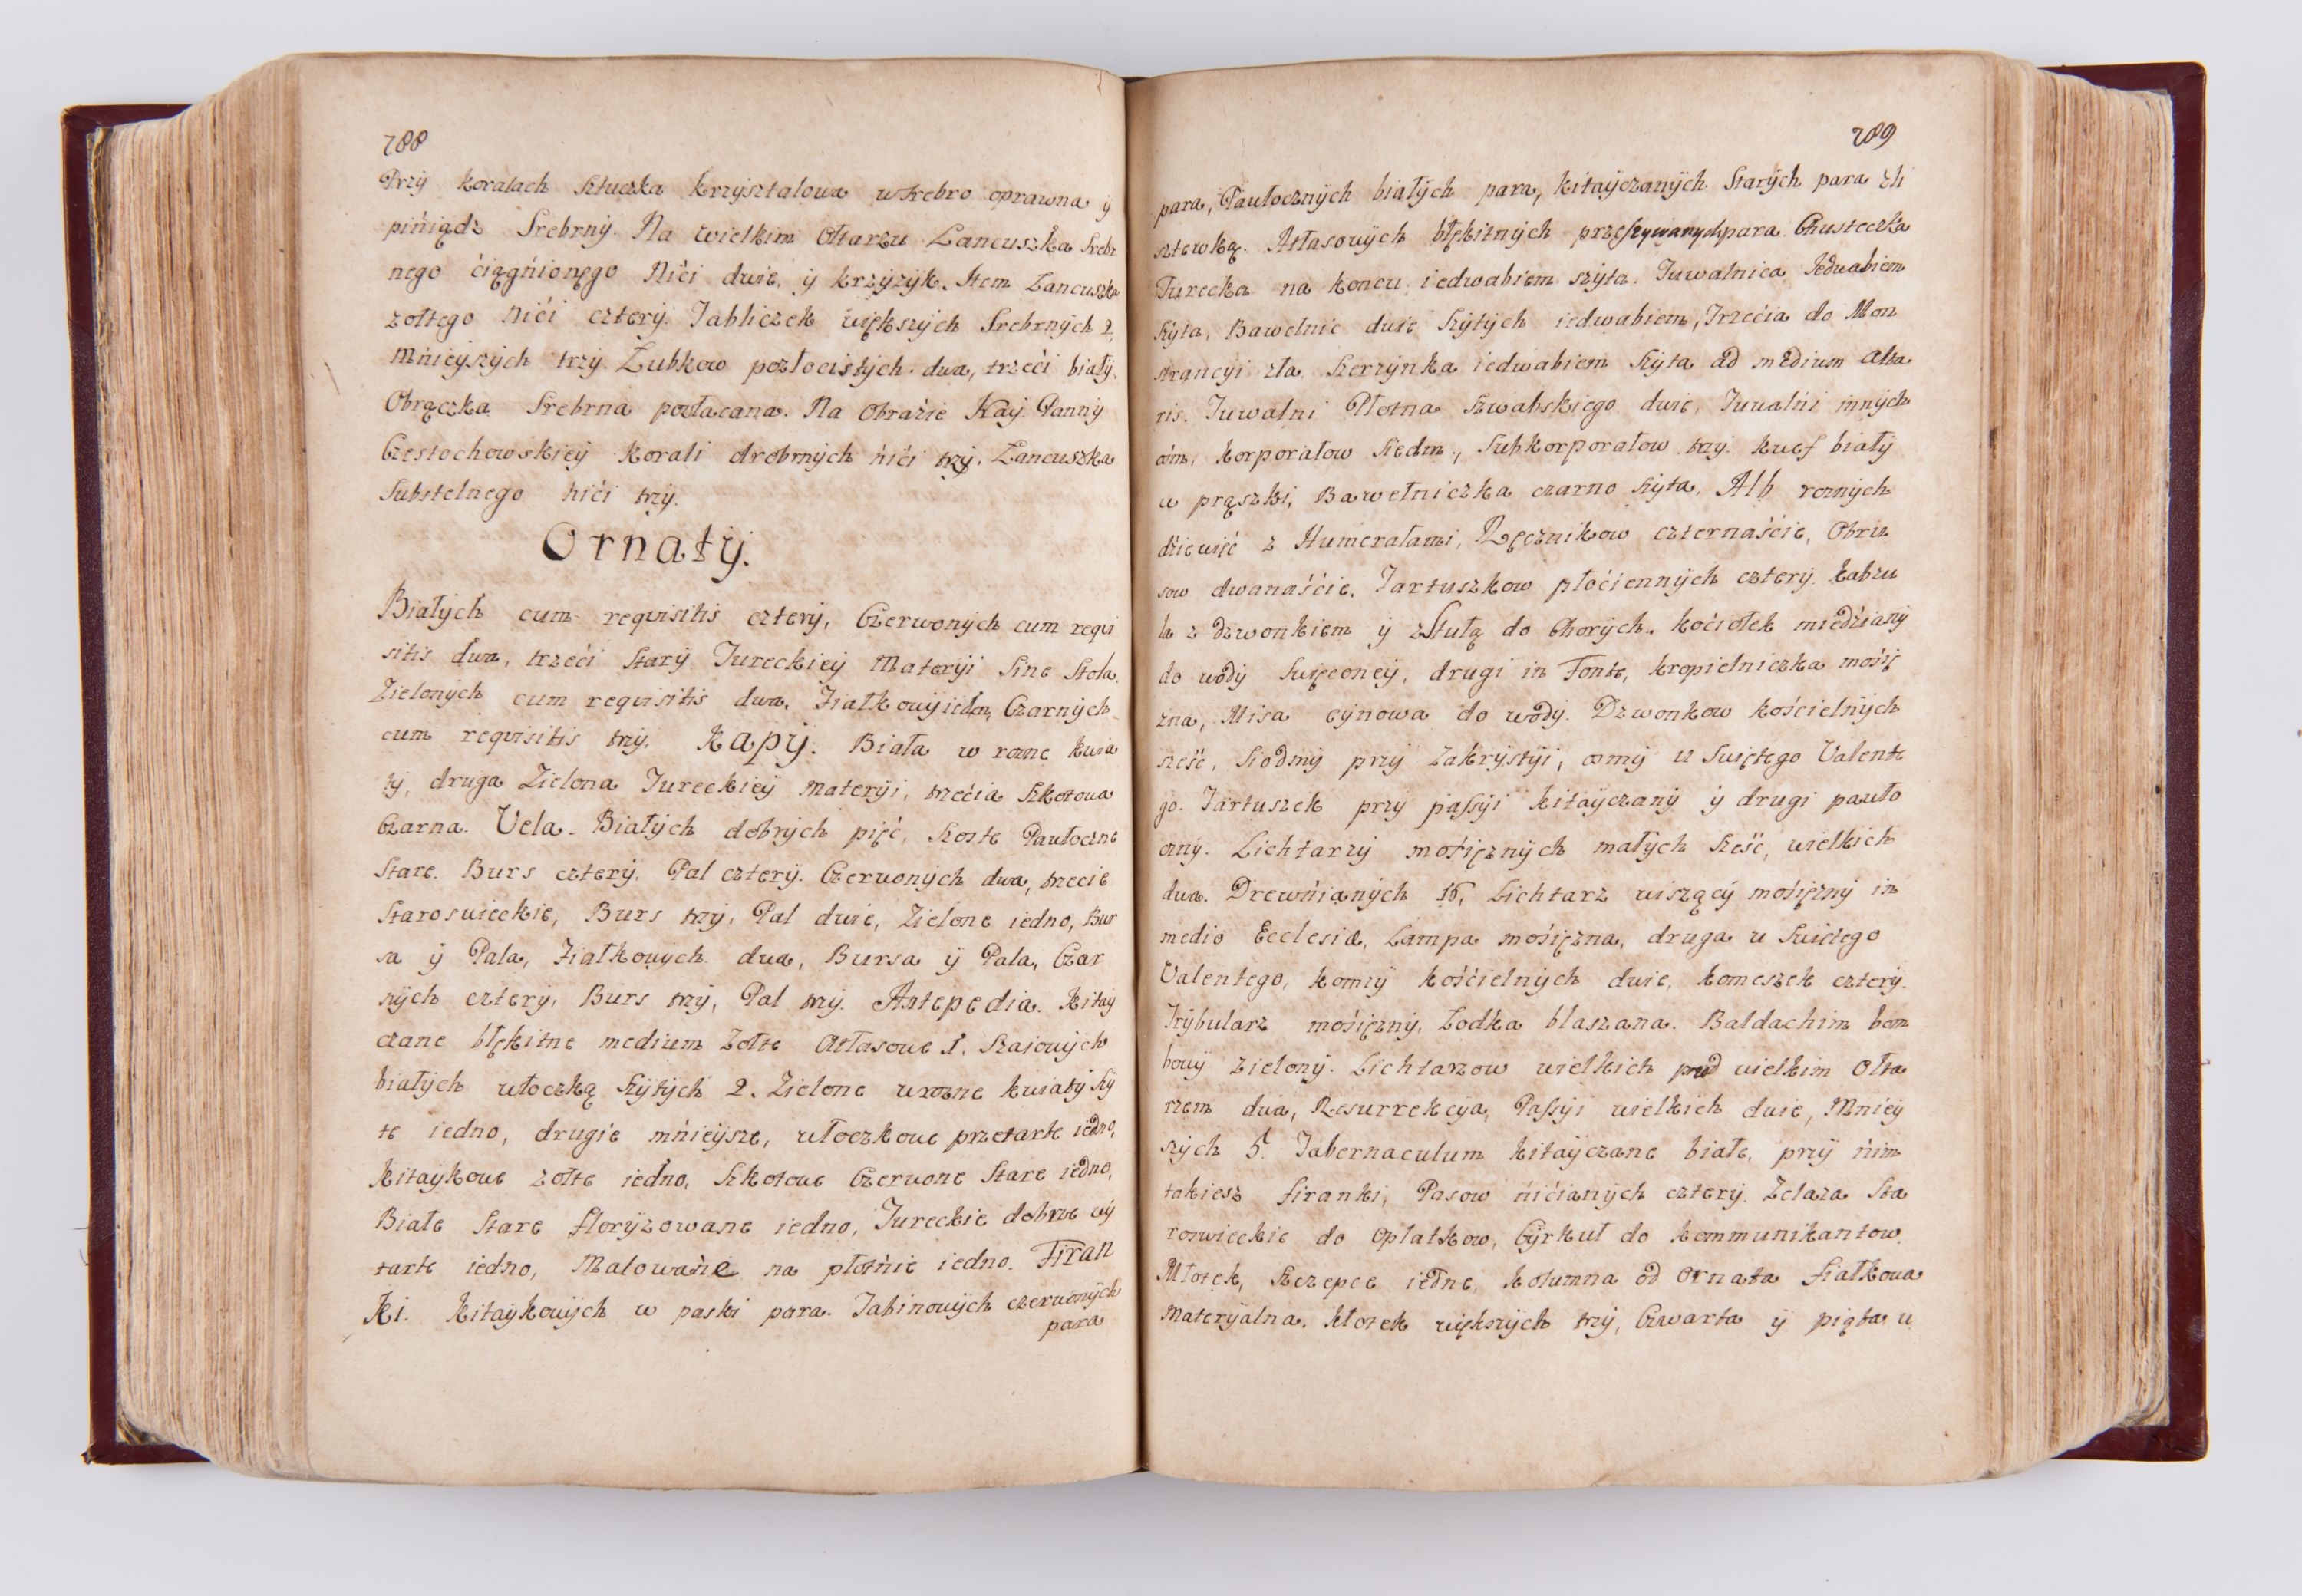 288
Przÿ koralach Sztuczka krzysztalowa wsrebro oprawna ÿ
pińiądz Srebrnÿ. Na wielkim Ołtarzu Łancuszka Srebr
nego ćiągńionęgo Nići dwie, ÿ krzÿżÿk. Item Łancuszka
zołtego Nići czterÿ. Tabliczek większÿch Srebrnÿch 2,
Mńieÿszÿch trzÿ. Żubkow pozłocistÿch dwa, trzeći białÿ.
Obrączka Srebrna pozłacana. Na Obraźie Naÿ. Pannÿ
Częstochowskieÿ Korali drobnÿch ńići trzÿ. Łancuszka
Subtelnego nići trzÿ.
Ornatÿ.
Białÿch cum requisitis czterÿ, Czerwonÿch cum requi
sitis dwa, trzeći Starÿ Tureckieÿ Materÿi Sine Stola.
Zielonÿch cum requisitis dwa, Fiałkowÿ ieden, Czarnÿch
cum requisitis trzÿ. Kapÿ. Biała w rozne kwia
tÿ, druga Zielona Tureckieÿ Materÿi, trzećia Szkotowa
Czarna. Vela. Białÿch dobrÿch pięć, Szoste Pawłoczne
Stare. Burs czterÿ, Pal czterÿ. Czerwonÿch dwa, trzecie
Staroswieckie, Burs trzÿ, Pal dwie, Zielone iedno, Bur
sa ÿ Pala, Fiałkowÿch dwa, Bursa ÿ Pala, Czar
nÿch czterÿ, Burs trzÿ, Pal trzÿ. Antepedia. Kitaÿ
czane błękitne medium Zołte Atłasowe 1. Szaiowÿch
białÿch włoczką Szÿtÿch 2. Zielone wrozne kwiatÿ Szÿ
te iedno, drugie mńieÿsze, włoczkowe przetarte iedno,
Kitaÿkowe zołte iedno, Szkotowe Czerwone Stare iedno,
Białe Stare florÿzowane iedno, Tureckie dobrze wÿ
tarte iedno, Malowańe na płotńie iedno. Firan
Ki. Kitaÿkowÿch w paski para. Tabinowÿch czerwonÿch
para
289
para, Pawłocznÿch białÿch para, kitaÿczanÿch Starÿch para zli
sztewką. Atłasowÿch błękitnÿch przeszywanych para. Chusteczka
Turecka na koncu iedwabiem szÿta. Tuwalnica Jedwabiem
Szÿta, Bawelnic dwie Szÿtÿch iedwabiem, Trzećia do Mon
strancÿi zła. Szerzÿnka iedwabiem Szÿta ad medium Alta
ris. Tuwalni Płotna Szwabskiego dwie, Tuwalni innÿch
ośm, Korporałow Siedm, Subkorporałow trzÿ. Kwef białÿ
w prążki, Bawełniczka czarno Szÿta, Alb roznÿch
dźiewięć z Humerałami, Ręcznikow czternaśćie, Obru
sow dwanaśćie, Fartuszkow płoćiennÿch czterÿ. Kabzu
la z dzwonkiem ÿ zStułą do Chorÿch. Koćiołek miedźianÿ
do wodÿ Swięconeÿ, drugi in Fonte, kropielniczka mośię
zna, Misa cÿnowa do wodÿ. Dzwonkow kośćielnÿch
sześć, Siodmÿ przÿ Zakrÿstÿi, osmÿ u Swiętego Valente
go. Fartuszek przy paſsÿi kitaÿczanÿ ÿ drugi pawło
cznÿ. Lichtarzÿ mośięznÿch małÿch Sześć, wielkich
dwa. Drewńianÿch 16, Lichtarz wiszącÿ mośiężnÿ in
medio Ecclesiæ, Lampa mośiężna, druga u Swiętego
Valentego, Komzÿ kośćielnÿch dwie, komeszek czterÿ.
Trÿbularz mośiężnÿ, Łodka blaszana. Baldachim bom
bowÿ zielonÿ. Lichtarzow wielkich pod wielkim Ołta
rzem dwa, Resurrekcÿa, Paſsÿi wielkich dwie, Mńieÿ
szÿch 5. Tabernaculum kitaÿczane białe, przÿ ńim
takiesz firanki, Pasow ńićianÿch czterÿ. Zelaza Sta
roswieckie do opłatkow, Cÿrkuł do kommunikantow.
Młotek, Szczepce iedne, kolumna od Ornata fiałkowa
Materÿalna. Kłotek większÿch trzÿ, Czwarta ÿ piąta u